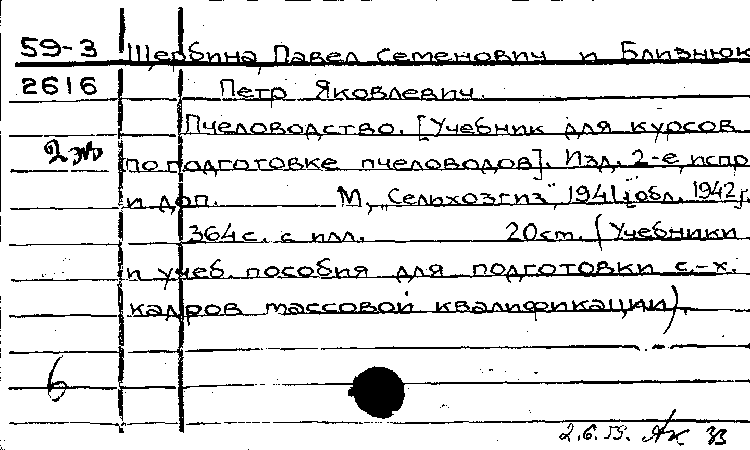 59-3 Щербина, Павел Семенович и Близнюк
2616 Петр Яковлевич.
Пчеловодство. [Учебник для курсов
2 экз по подготовке пчеловодов]. Изд. 2-е, испр
и доп. М, „Сельхозгиз", 1941; обл. 1942 г.
364 с. с илл. 20 см. (Учебники
и учеб. пособия для подготовки с.-х.
кадров массовой квалификации).
6
2.6.59.